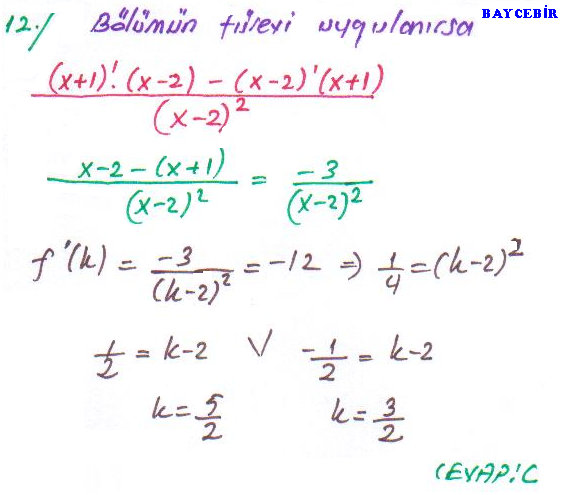 BAYCEBİR
12./ Bölümün türevi uygulanırsa
(x+1)'.(x-2) - (x-2)'(x+1) / (x-2)²
x-2-(x+1) / (x-2)² = -3 / (x-2)²
f'(k) = -3 / (k-2)² = -12 ⇒ 1/4 = (k-2)²
1/2 = k-2 ∨ -1/2 = k-2
k = 5/2 k = 3/2
CEVAP: C